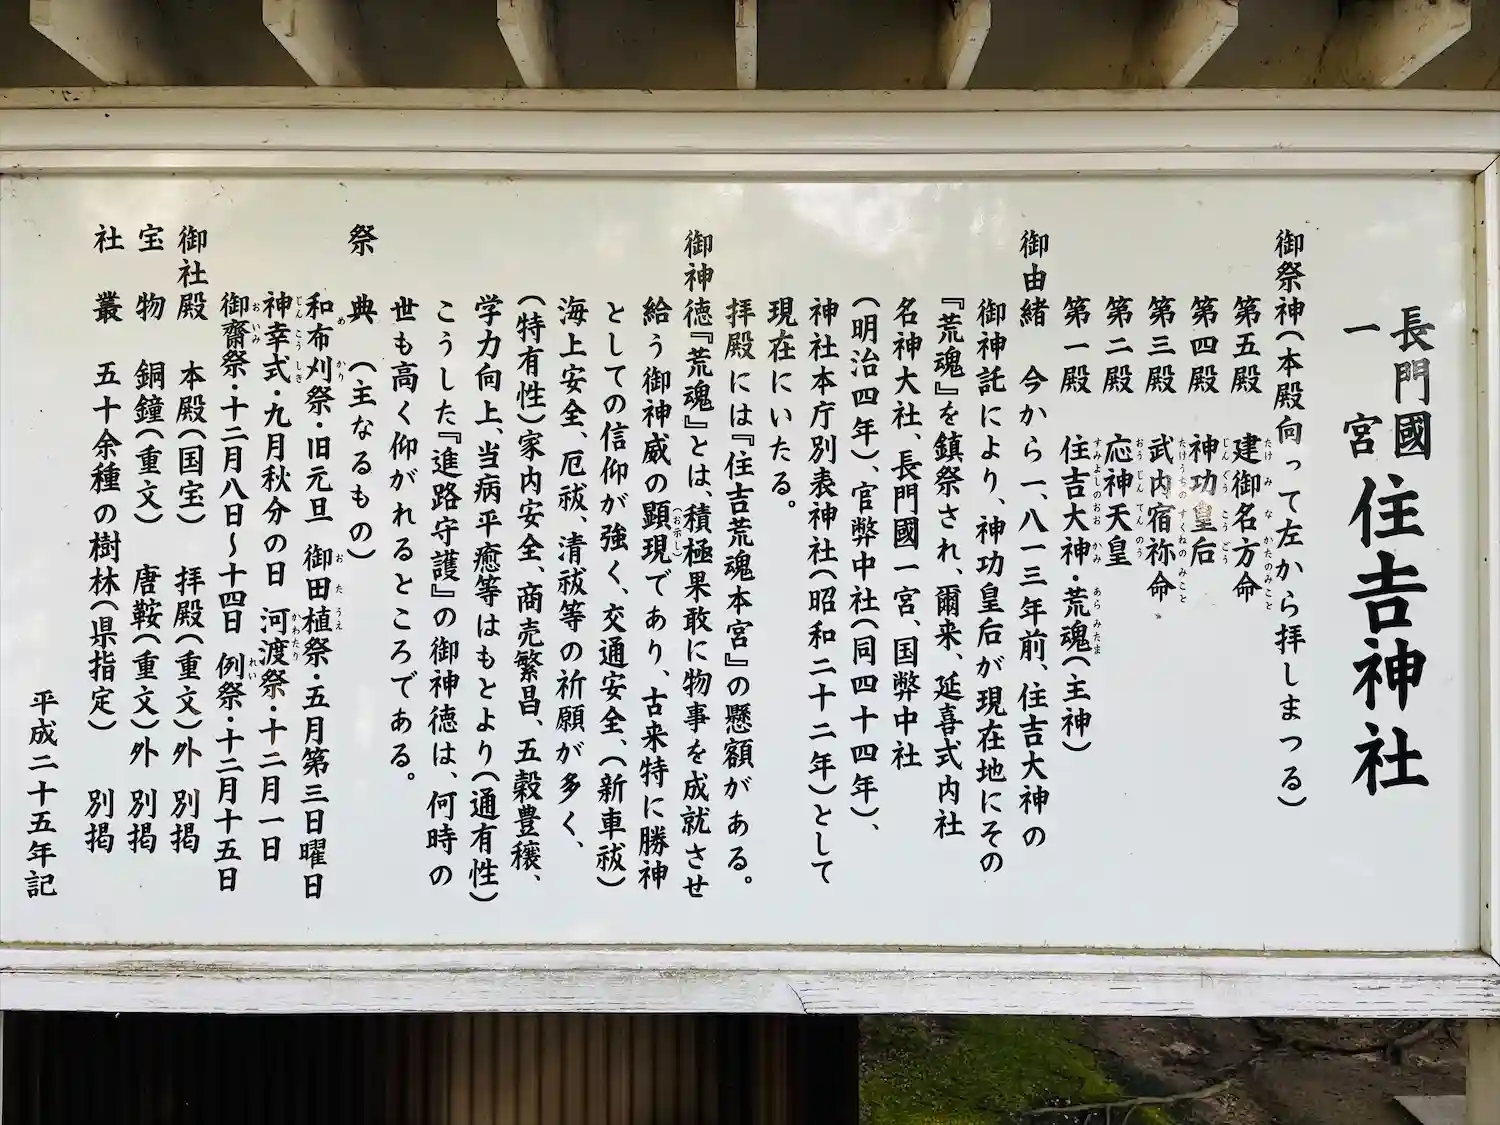 長門國
一宮 住吉神社
御祭神(本殿向って左から拝しまつる)
第五殿 建御名方命
たけみなかたのみこと
第四殿 神功皇后
じんぐうこうごう
第三殿 武内宿祢命
たけうちのすくねのみこと
第二殿 応神天皇
おうじんてんのう
第一殿 住吉大神・荒魂(主神)
すみよしのおおかみ あらみたま
御由緒 今から一、八一三年前、住吉大神の
御神託により、神功皇后が現在地にその
『荒魂』を鎮祭され、爾来、延喜式内社
名神大社、長門國一宮、国弊中社
(明治四年)、官弊中社(同四十四年)、
神社本庁別表神社(昭和二十二年)として
現在にいたる。
拝殿には『住吉荒魂本宮』の懸額がある。
御神徳『荒魂』とは、積極果敢に物事を成就させ
(お示し)
給う御神威の顕現であり、古来特に勝神
としての信仰が強く、交通安全、(新車祓)
海上安全、厄祓、清祓等の祈願が多く、
(特有性)家内安全、商売繁昌、五穀豊穣、
学力向上、当病平癒等はもとより(通有性)
こうした『進路守護』の御神徳は、何時の
世も高く仰がれるところである。
祭典 (主なるもの)
和布刈祭・旧元旦 御田植祭・五月第三日曜日
めかり おたうえ
神幸式・九月秋分の日 河渡祭・十二月一日
じんこうしき かわたり
御齋祭・十二月八日〜十四日 例祭・十二月十五日
おいみ れい
御社殿 本殿(国宝) 拝殿(重文)外 別掲
宝物 銅鐘(重文) 唐鞍(重文)外 別掲
社叢 五十余種の樹林(県指定) 別掲
平成二十五年記